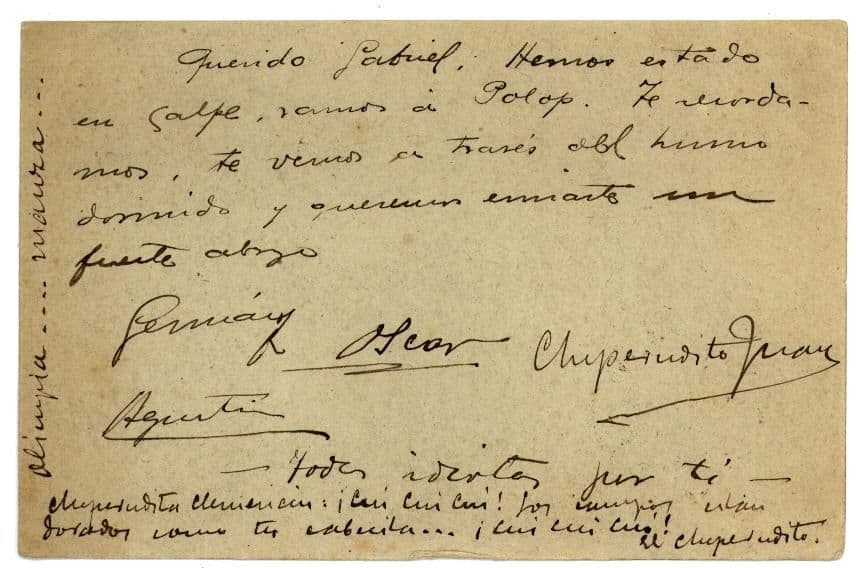 Querido Gabriel. Hemos estado
en Calpe, vamos á Polop. Te recorda-
mos, te vemos a través del humo
dormido y queremos enviarte un
fuerte abrazo
Germán
Oscar
Chuperudito Juan
Agustin
— Todos idiotas por ti —
Chuperudita Clemencia: ¡cui cui cui! Los campos están
dorados como tu cabecita... ¡cui cui cui!
El Chuperudito.
Olimpia.... maura...